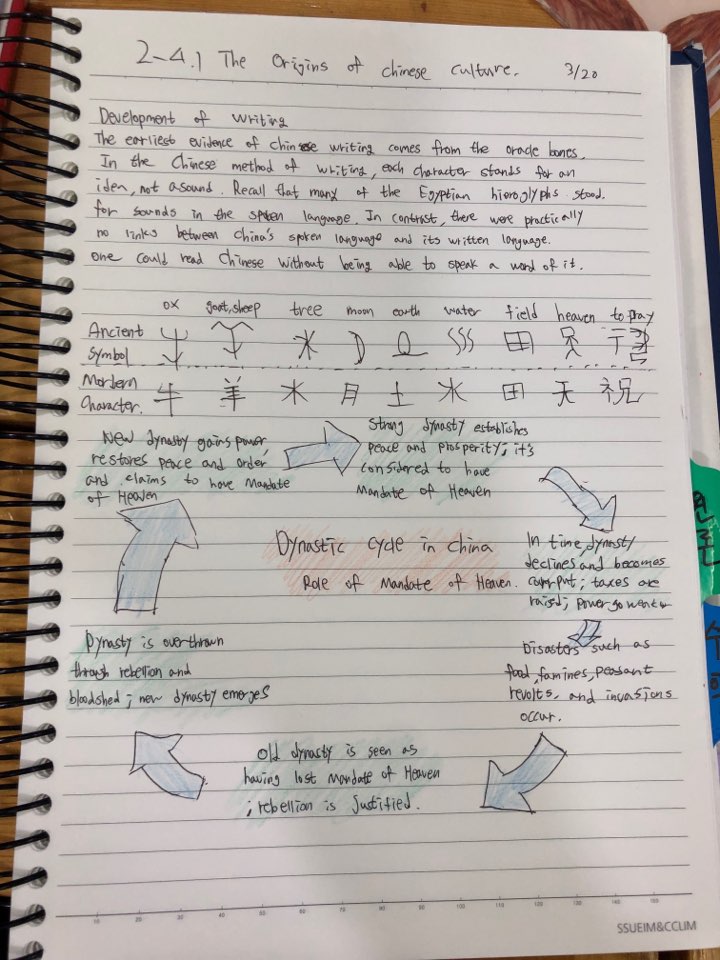 2-4.1 The Origins of chinese culture. 3/20
Development of writing
The earliest evidence of chinese writing comes from the oracle bones.
In the Chinese method of writing, each character stands for an
idea, not a sound. Recall that many of the Egyptian hieroglyphs stood.
for sounds in the spoken language. In contrast, there were practically
no links between China's spoken language and its written language.
one could read Chinese without being able to speak a word of it.
ox goat, sheep tree moon earth water field heaven to pray
Ancient
Symbol
Mordern
Character. 牛 羊 木 月 土 水 田 天 祝
New dynasty gains power,
restores peace and order
and claims to have Mandate
of Heaven
Strong dynasty establishes
peace and phosperity; it's
considered to have
Mandate of Heaven
In time, dynasty
declines and becomes
corrput; taxes are
raised; power
Dynastic cycle in China
Role of Mandate of Heaven.
Disasters such as
flood, famines, peasant
revolts, and invasions
occur.
Old dynasty is seen as
having lost Mandate of Heaven
; rebellion is justified.
Dynasty is overthrown
through rebellion and
bloodshed; new dynasty emerges
10 20 30 40 50 60 70 80 90 100 110 120 130 140 150
SSUEIM&CCLIM